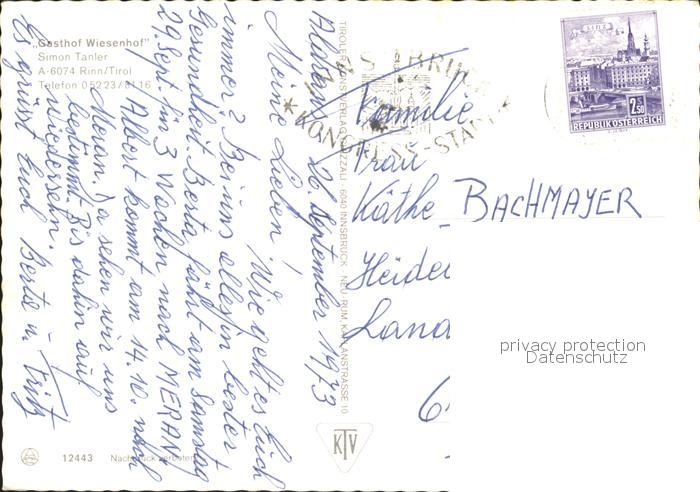 „Gasthof Wiesenhof"
Simon Tanler
A-6074 Rinn/Tirol
Telefon 05223/8116
Aldrans, 26. September 1973
Meine Lieben! Wie geht es Euch
immer? Bei uns alles in bester
Gesundheit. Berta fährt am Samstag
29. Sept. für 3 Wochen nach MERAN
Albert kommt am 14.10. nach
Meran. Da sehen wir uns
bestimmt. Bis dahin auf
Wiedersehn.
Es grüsst Euch Berta u. Fritz
12443 Nachdruck verboten
6040 INNSBRUCK NEU-RUM
KTV
INNSBRUCK
KONGRESS-STADT
LINZ
2.50
REPUBLIK ÖSTERREICH
Familie
Frau
Käthe BACHMAYER
Heide
Land
6
privacy protection
Datenschutz